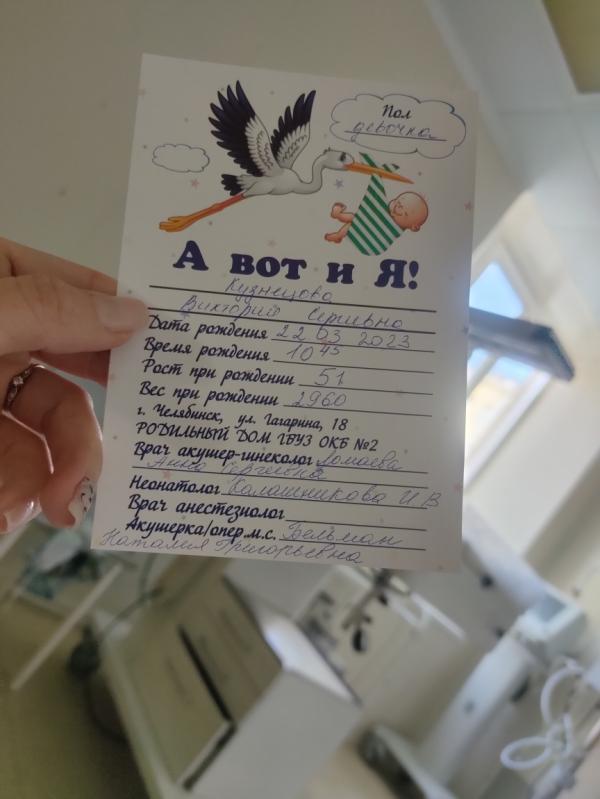 Пол
девочка
А вот и Я!
Кузнецова
Виктория Сергеевна
Дата рождения 22 03 2023
Время рождения 10 45
Рост при рождении 51
Вес при рождении 2960
г. Челябинск, ул. Гагарина, 18
РОДИЛЬНЫЙ ДОМ ГБУЗ ОКБ №2
Врач акушер-гинеколог Ломаева
Анна Сергеевна
Неонатолог Калашникова И.В
Врач анестезиолог
Акушерка/опер.м.с. Бельман
Наталия Григорьевна